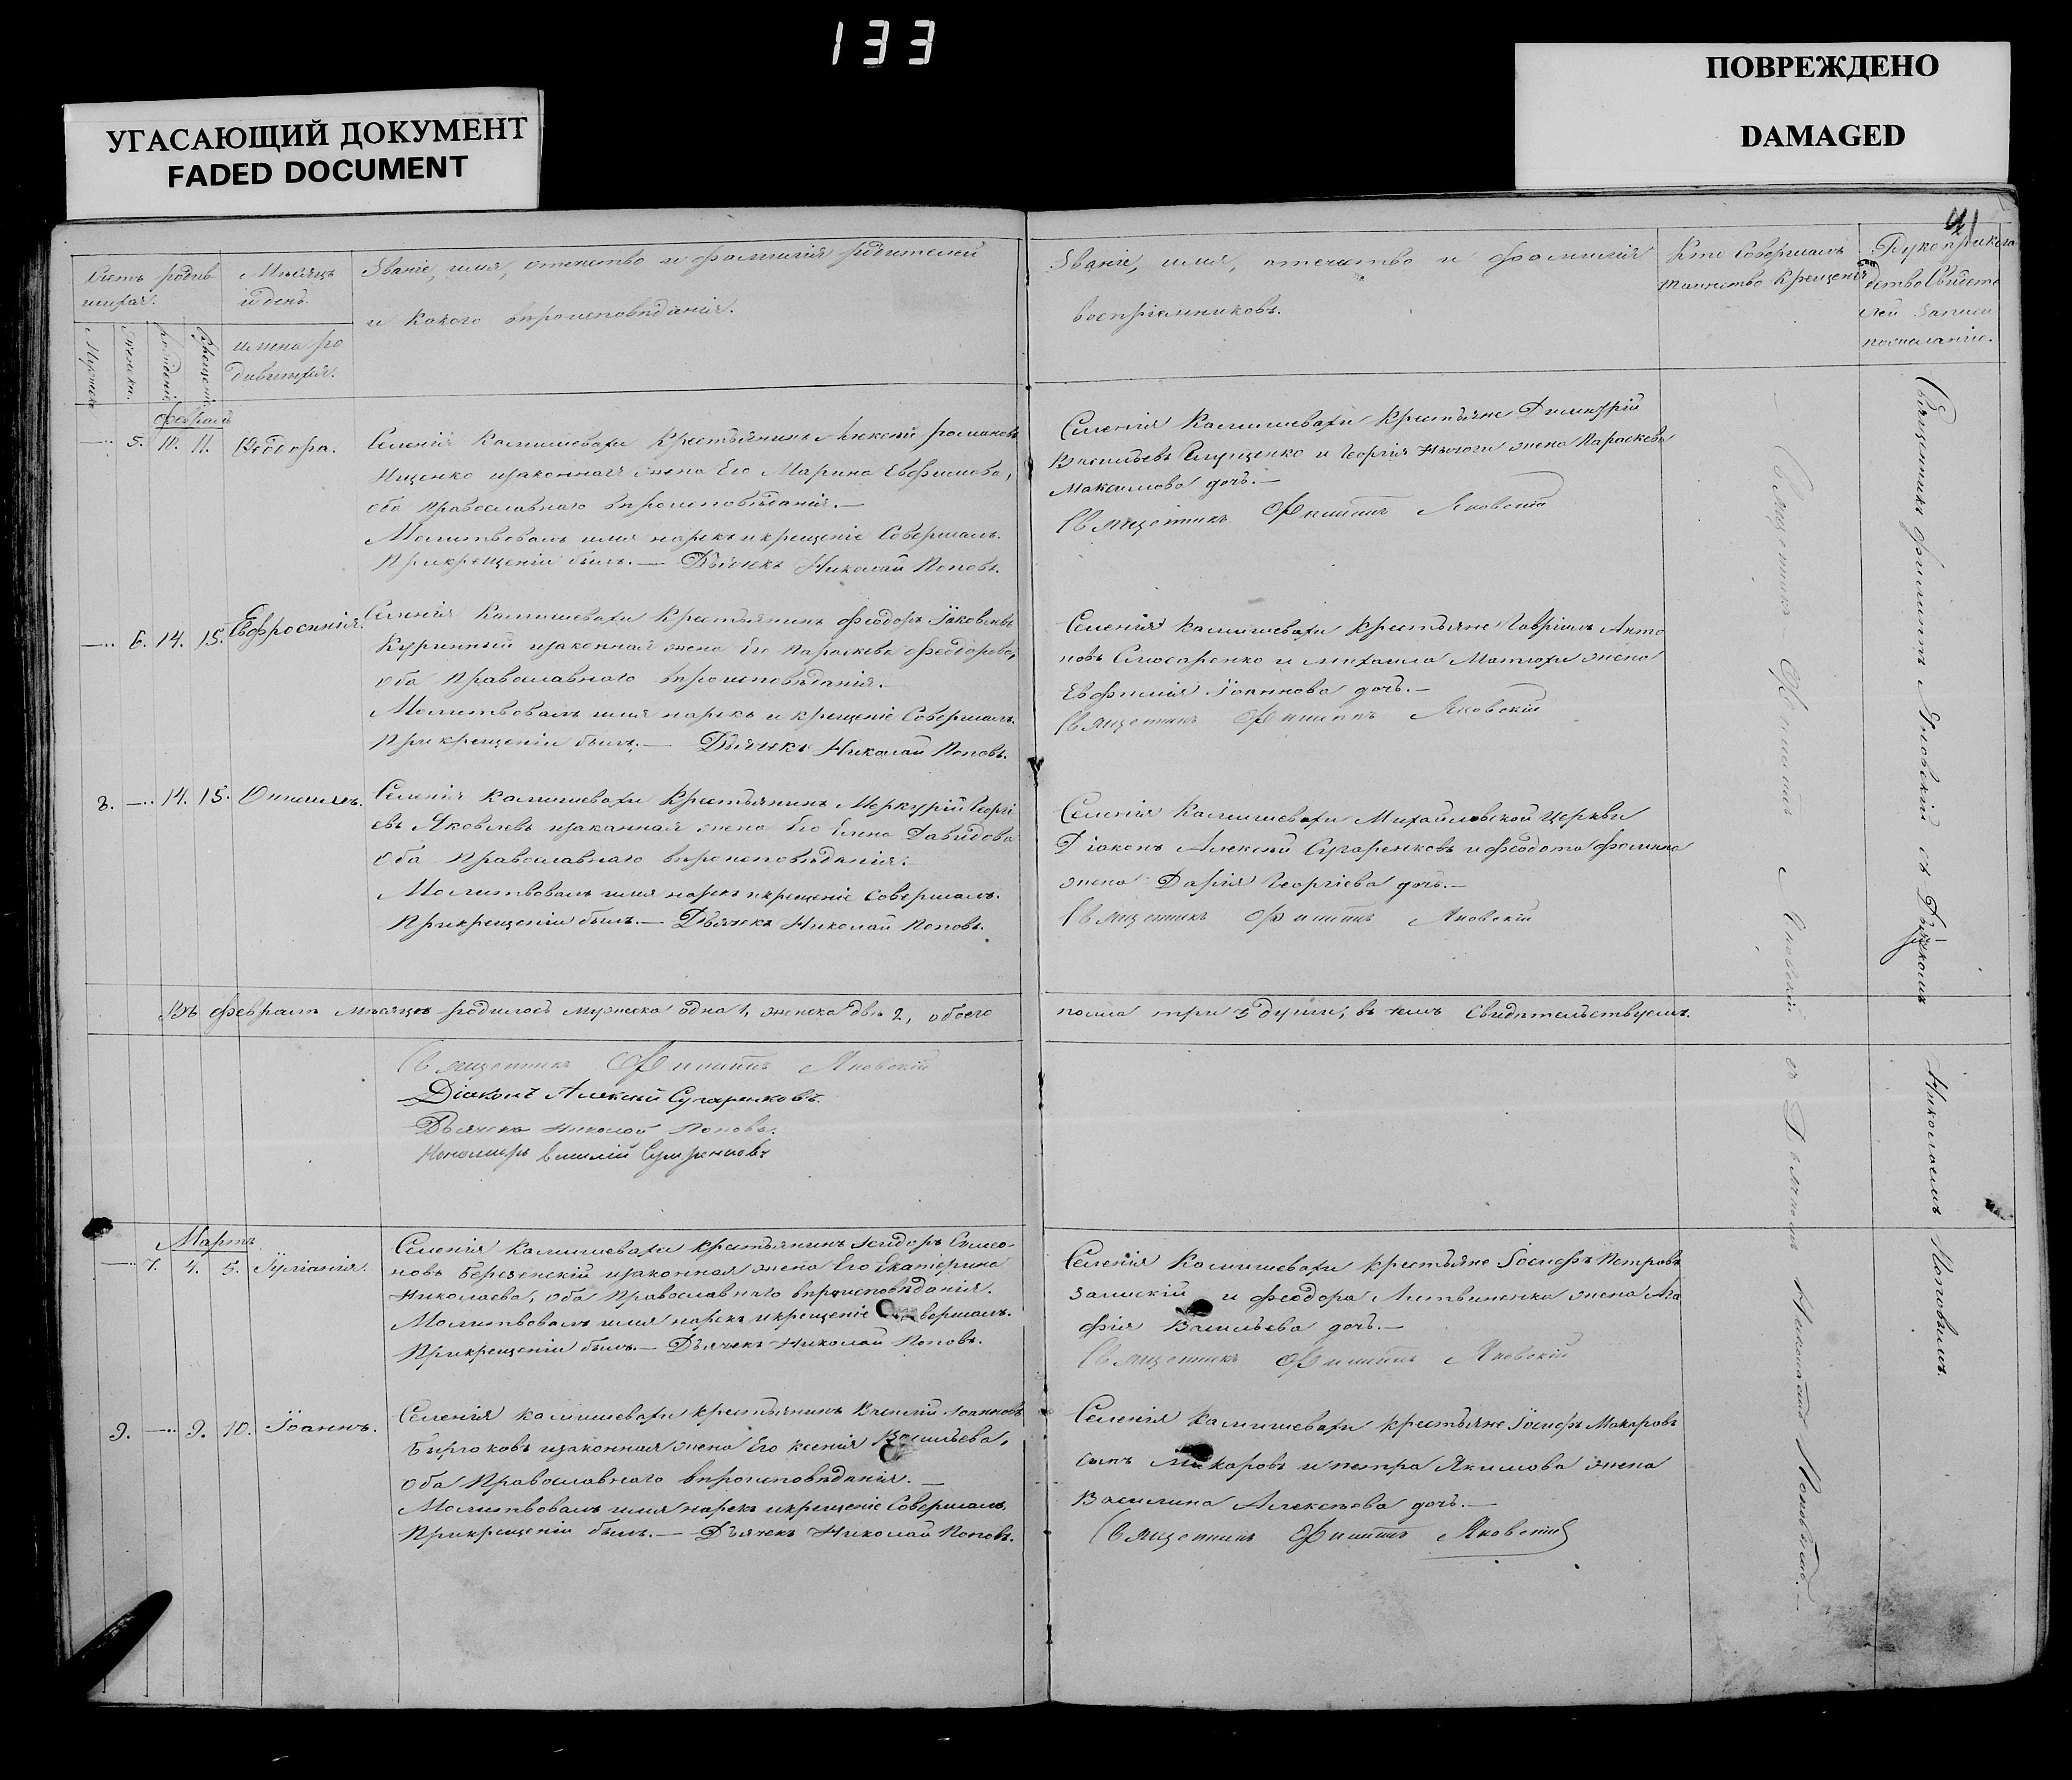 133
УГАСАЮЩИЙ ДОКУМЕНТ
FADED DOCUMENT
ПОВРЕЖДЕНО
DAMAGED
41
Счетъ родив
шихся.
Мѣсяцъ
и день.
имена ро
дившихся.
Званіе, имя, отечество и фамилія родителей
и какого вѣроисповѣданія.
Званіе, имя, отечество и фамилія
воспріемниковъ.
Кто совершалъ
таинство крещенія
Рукоприклад
ство свидѣте
лей записи
по желанію.
Февраль
5. 10. 11. Ѳеодора.
Селенія Камишевахи крестьянинъ Алексій Романовъ
Ищенко изаконная жена Его Марина Евфимова,
оба православнаго вѣроисповѣданія.—
Молитвовалъ имя нарекъ и крещеніе Совершалъ.
При крещеніи былъ.— Дьячекъ Николай Поповъ.
Селенія Камишевахи крестьяне Димитрій
Васильевъ и Георгія жена Параскева
Максимова дочь.—
Священникъ Филиппъ Яновскій
6. 14. 15. Евфросинія.
Селенія Камишевахи крестьянинъ Феодоръ Іаковлевъ
Куринный изаконная жена Его Параскева Феодорова,
оба Православнаго вѣроисповѣданія.—
Молитвовалъ имя нарекъ и крещеніе Совершалъ.
При крещеніи былъ.— Дьячекъ Николай Поповъ.
Селенія Камишевахи крестьяне Гавріилъ Анто
новъ Слюсаренко и михаила Матюхи жена
Евфимія Іоаннова дочь.—
Священникъ Филиппъ Яновскій
8. 14. 15. Онисимъ.
Селенія Камишевахи Крестьянинъ Меркурій Георгі
евъ Яковлевъ изаконная жена Его Елена Давидова
оба Православнаго вѣроисповѣданія.
Молитвовалъ имя нарекъ и крещеніе Совершалъ.
При крещеніи былъ.— Дьячекъ Николай Поповъ.
Селенія Камишевахи Михайловской Церкви
Діаконъ Алексій Сухаренковъ и феодота фомина
жена Дарія Георгіева дочь.—
Священникъ Филиппъ Яновскій
Въ Февралѣ мѣсяцѣ родилось мужеска одна 1, женска двѣ 2, обоего
пола три 3 души; въ чемъ Свидѣтельствуемъ.
Священникъ Филиппъ Яновскій
Діаконъ Алексій Сухаренковъ.
Дьячекъ Николай Поповъ.
Пономарь Василій
Мартъ
7. 4. 5. Іуліанія.
Селенія Камишевахи крестьянинъ Исидоръ Симео-
новъ Березенскій изаконная жена Его Екатерина
Николаева, оба Православнаго вѣроисповѣданія.
Молитвовалъ имя нарекъ и крещеніе Совершалъ.
При крещеніи былъ.— Дьячекъ Николай Поповъ.
Селенія Камишевахи крестьяне Іосифъ Петровъ
и феодора Литвиненка жена Ага
фія Васильева дочь.—
Священникъ Филиппъ Яновскій
9. 9. 10. Іоаннъ.
Селенія Камишевахи крестьянинъ Василій Іоанновъ
Бирюковъ изаконная жена Его Ксенія Васильева,
оба Православнаго вѣроисповѣданія.—
Молитвовалъ имя нарекъ и крещеніе Совершалъ.
При крещеніи былъ.— Дьячекъ Николай Поповъ.
Селенія Камишевахи крестьяне Іосифъ Макаровъ
сынъ Макаровъ и петра Якимова жена
Василина Алексѣева дочь.—
Священникъ Филиппъ Яновскій
Священникъ Филиппъ Яновскій съ Дьячкомъ Николаемъ Поповымъ.—
Священникъ Филиппъ Яновскій съ Дьячкомъ Николаемъ Поповымъ.